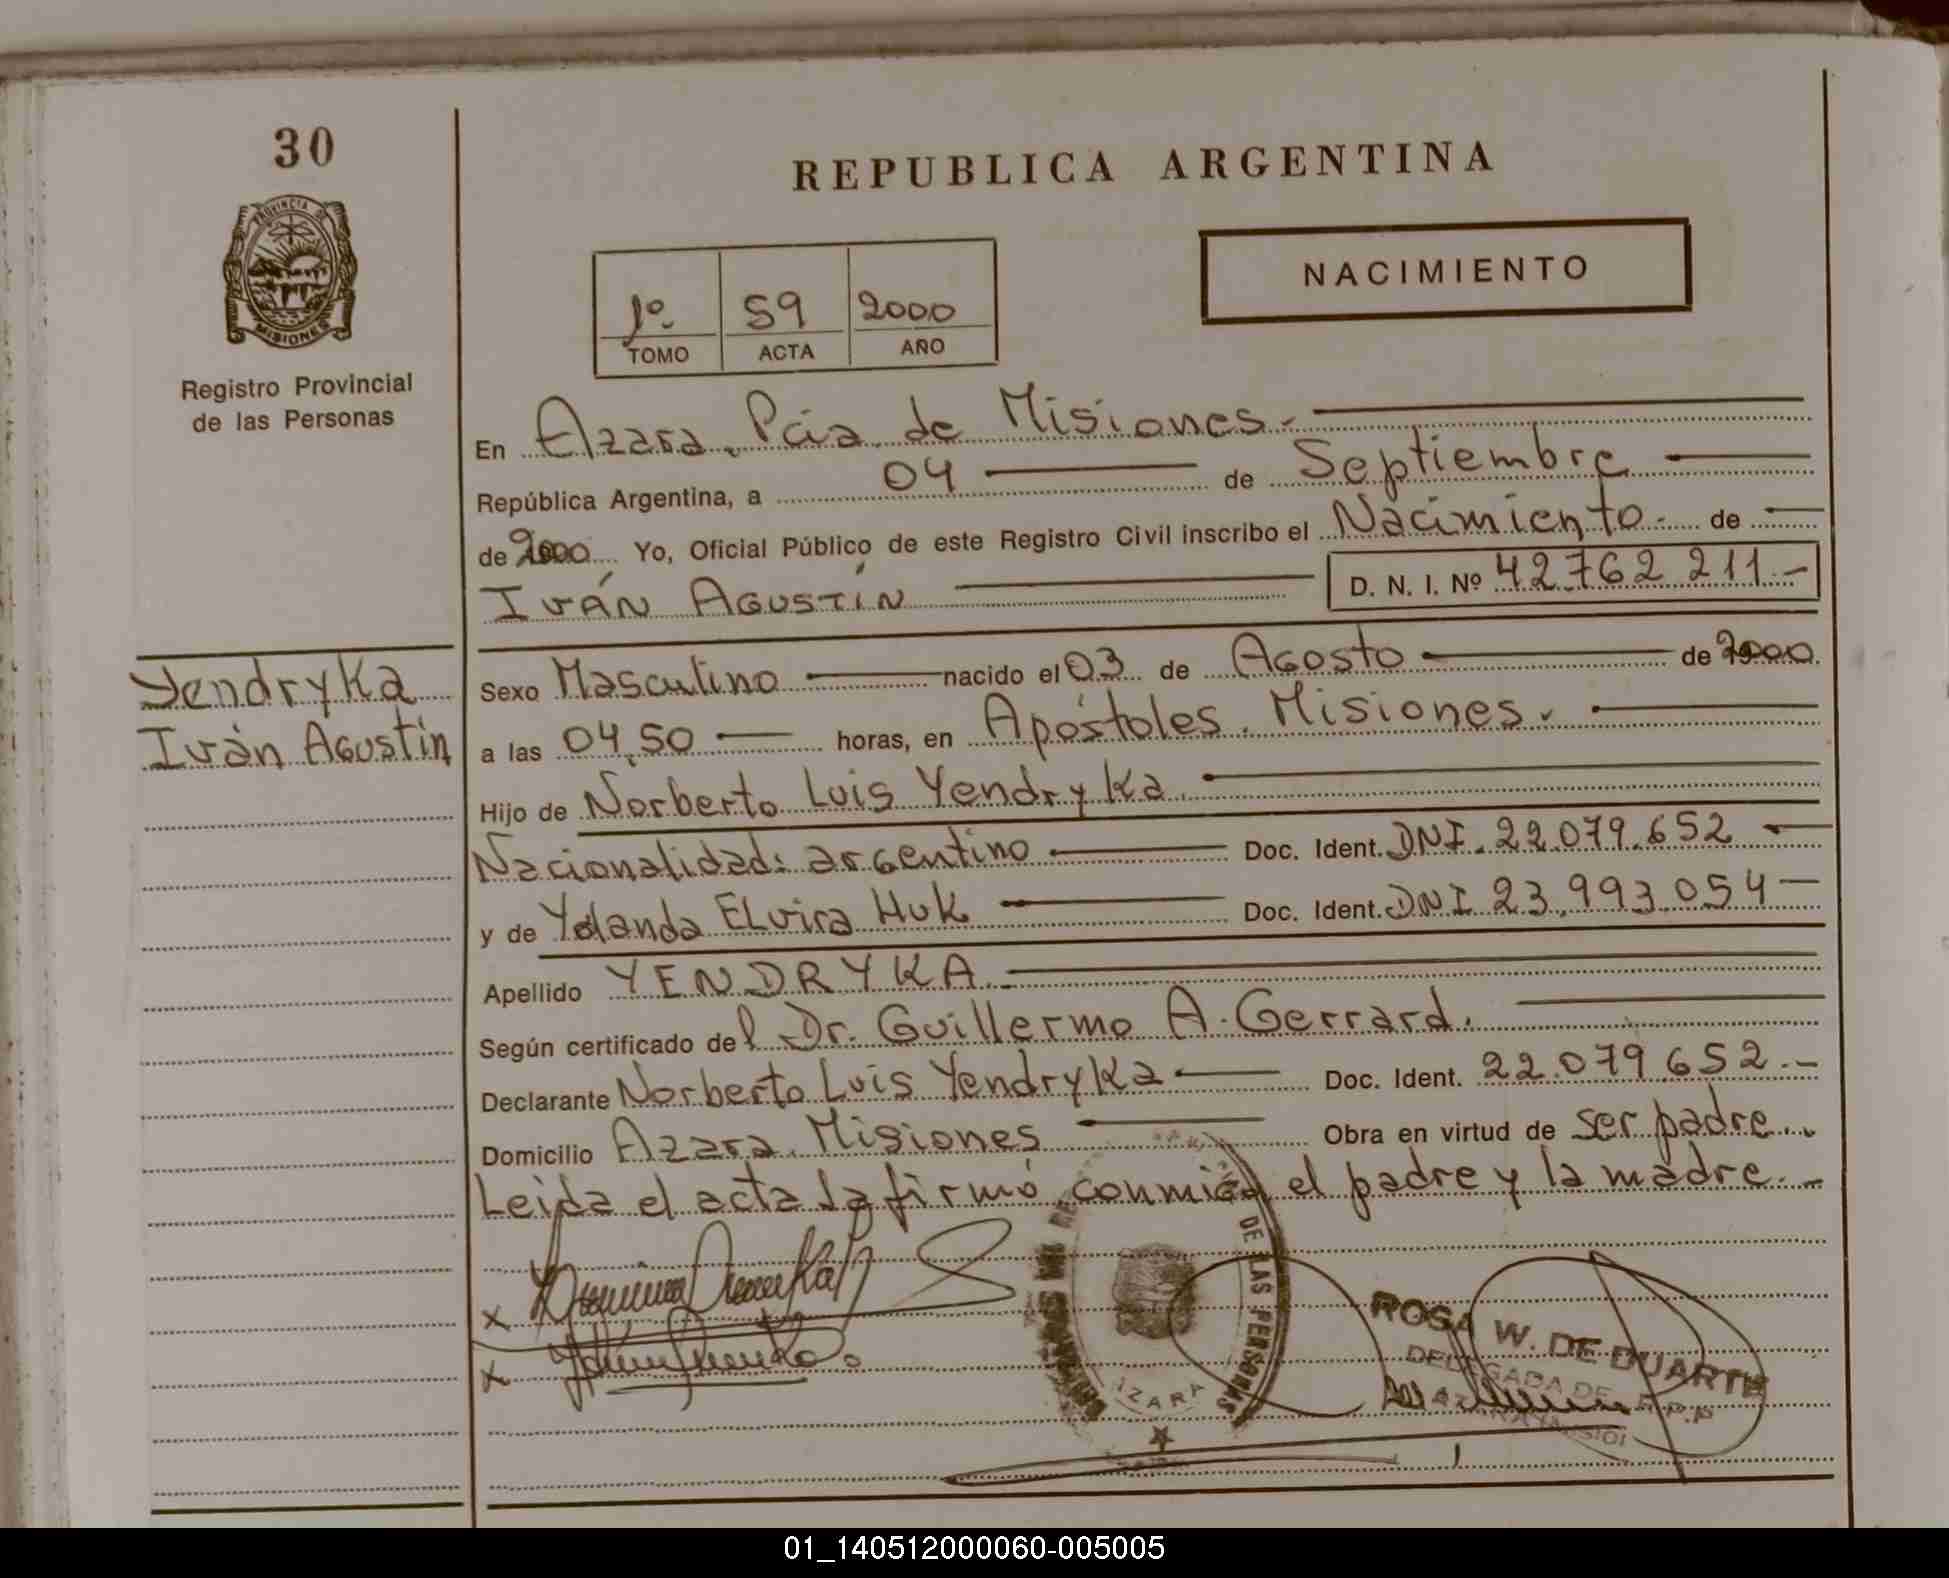 30
PROVINCIA DE
MISIONES
Registro Provincial
de las Personas
REPUBLICA ARGENTINA
NACIMIENTO
1º 59 2000
TOMO ACTA AÑO
En Azara, Pcia de Misiones.-
República Argentina, a 04 de Septiembre
de 2000 Yo, Oficial Público de este Registro Civil inscribo el Nacimiento.- de
IVÁN AGUSTÍN D. N. I. Nº 42762211.-
Yendryka
Iván Agustín
Sexo Masculino nacido el 03 de Agosto de 2000
a las 04,50 horas, en Apóstoles, Misiones.
Hijo de Norberto Luis Yendryka
Nacionalidad: argentino Doc. Ident. DNI. 22.079.652
y de Yolanda Elvira Huk Doc. Ident. DNI 23,993.054
Apellido YENDRYKA.-
Según certificado del Dr. Guillermo A. Gerrard.
Declarante Norberto Luis Yendryka Doc. Ident. 22.079.652.-
Domicilio Azara, Misiones Obra en virtud de ser padre..
Leida el acta la firmó conmigo el padre y la madre.-
x
x
DE LAS PERSONAS
AZARA
ROSA W. DE DUARTE
DELEGADA DE R.P.P
01_140512000060-005005